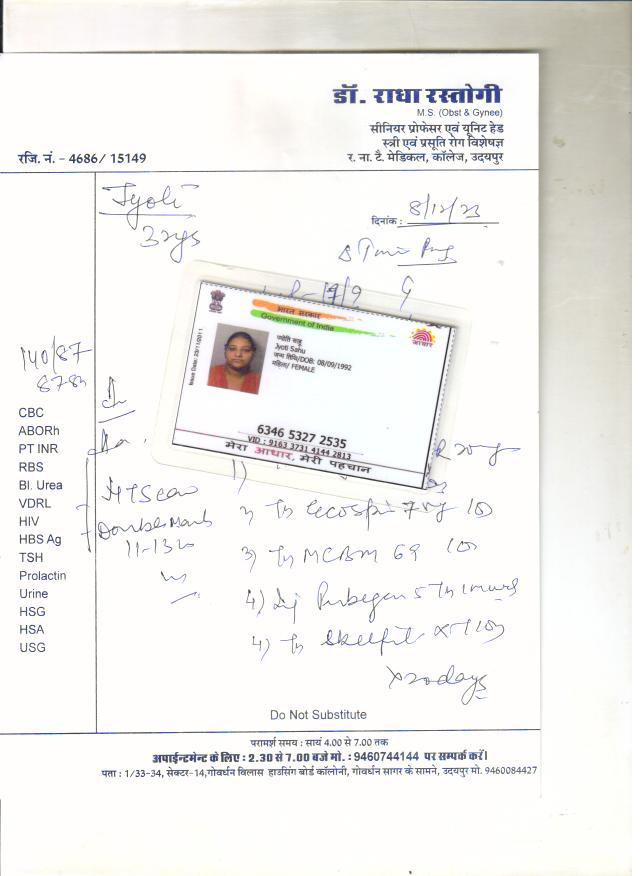 डॉ. राधा रस्तोगी
M.S. (Obst & Gynee)
सीनियर प्रोफेसर एवं यूनिट हेड
स्त्री एवं प्रसूति रोग विशेषज्ञ
रजि. नं. - 4686/ 15149
र. ना. टै. मेडिकल, कॉलेज, उदयपुर
Jyoti
दिनांक : 8/12/23
भारत सरकार
Government of India
Issue Date: 23/11/2011
ज्योति साहू
Jyoti Sahu
जन्म तिथि/DOB: 08/09/1992
महिला/ FEMALE
आधार
6346 5327 2535
VID : 9163 3731 4144 2813
मेरा आधार, मेरी पहचान
140/87
CBC
ABORh
PT INR
RBS
Bl. Urea
VDRL
HIV
HBS Ag
TSH
Prolactin
Urine
HSG
HSA
USG
NT Scan
Double Mark
11-13
1)
2) Tn Ecospi
3) Tn MCBM 69
4) Inj
4) Tn Skelfit
x20days
Do Not Substitute
परामर्श समय : सायं 4.00 से 7.00 तक
अपाईन्टमेन्ट के लिए : 2.30 से 7.00 बजे मो. : 9460744144 पर सम्पर्क करें।
पता : 1/33-34, सेक्टर-14,गोवर्धन विलास हाउसिंग बोर्ड कॉलोनी, गोवर्धन सागर के सामने, उदयपुर मो. 9460084427